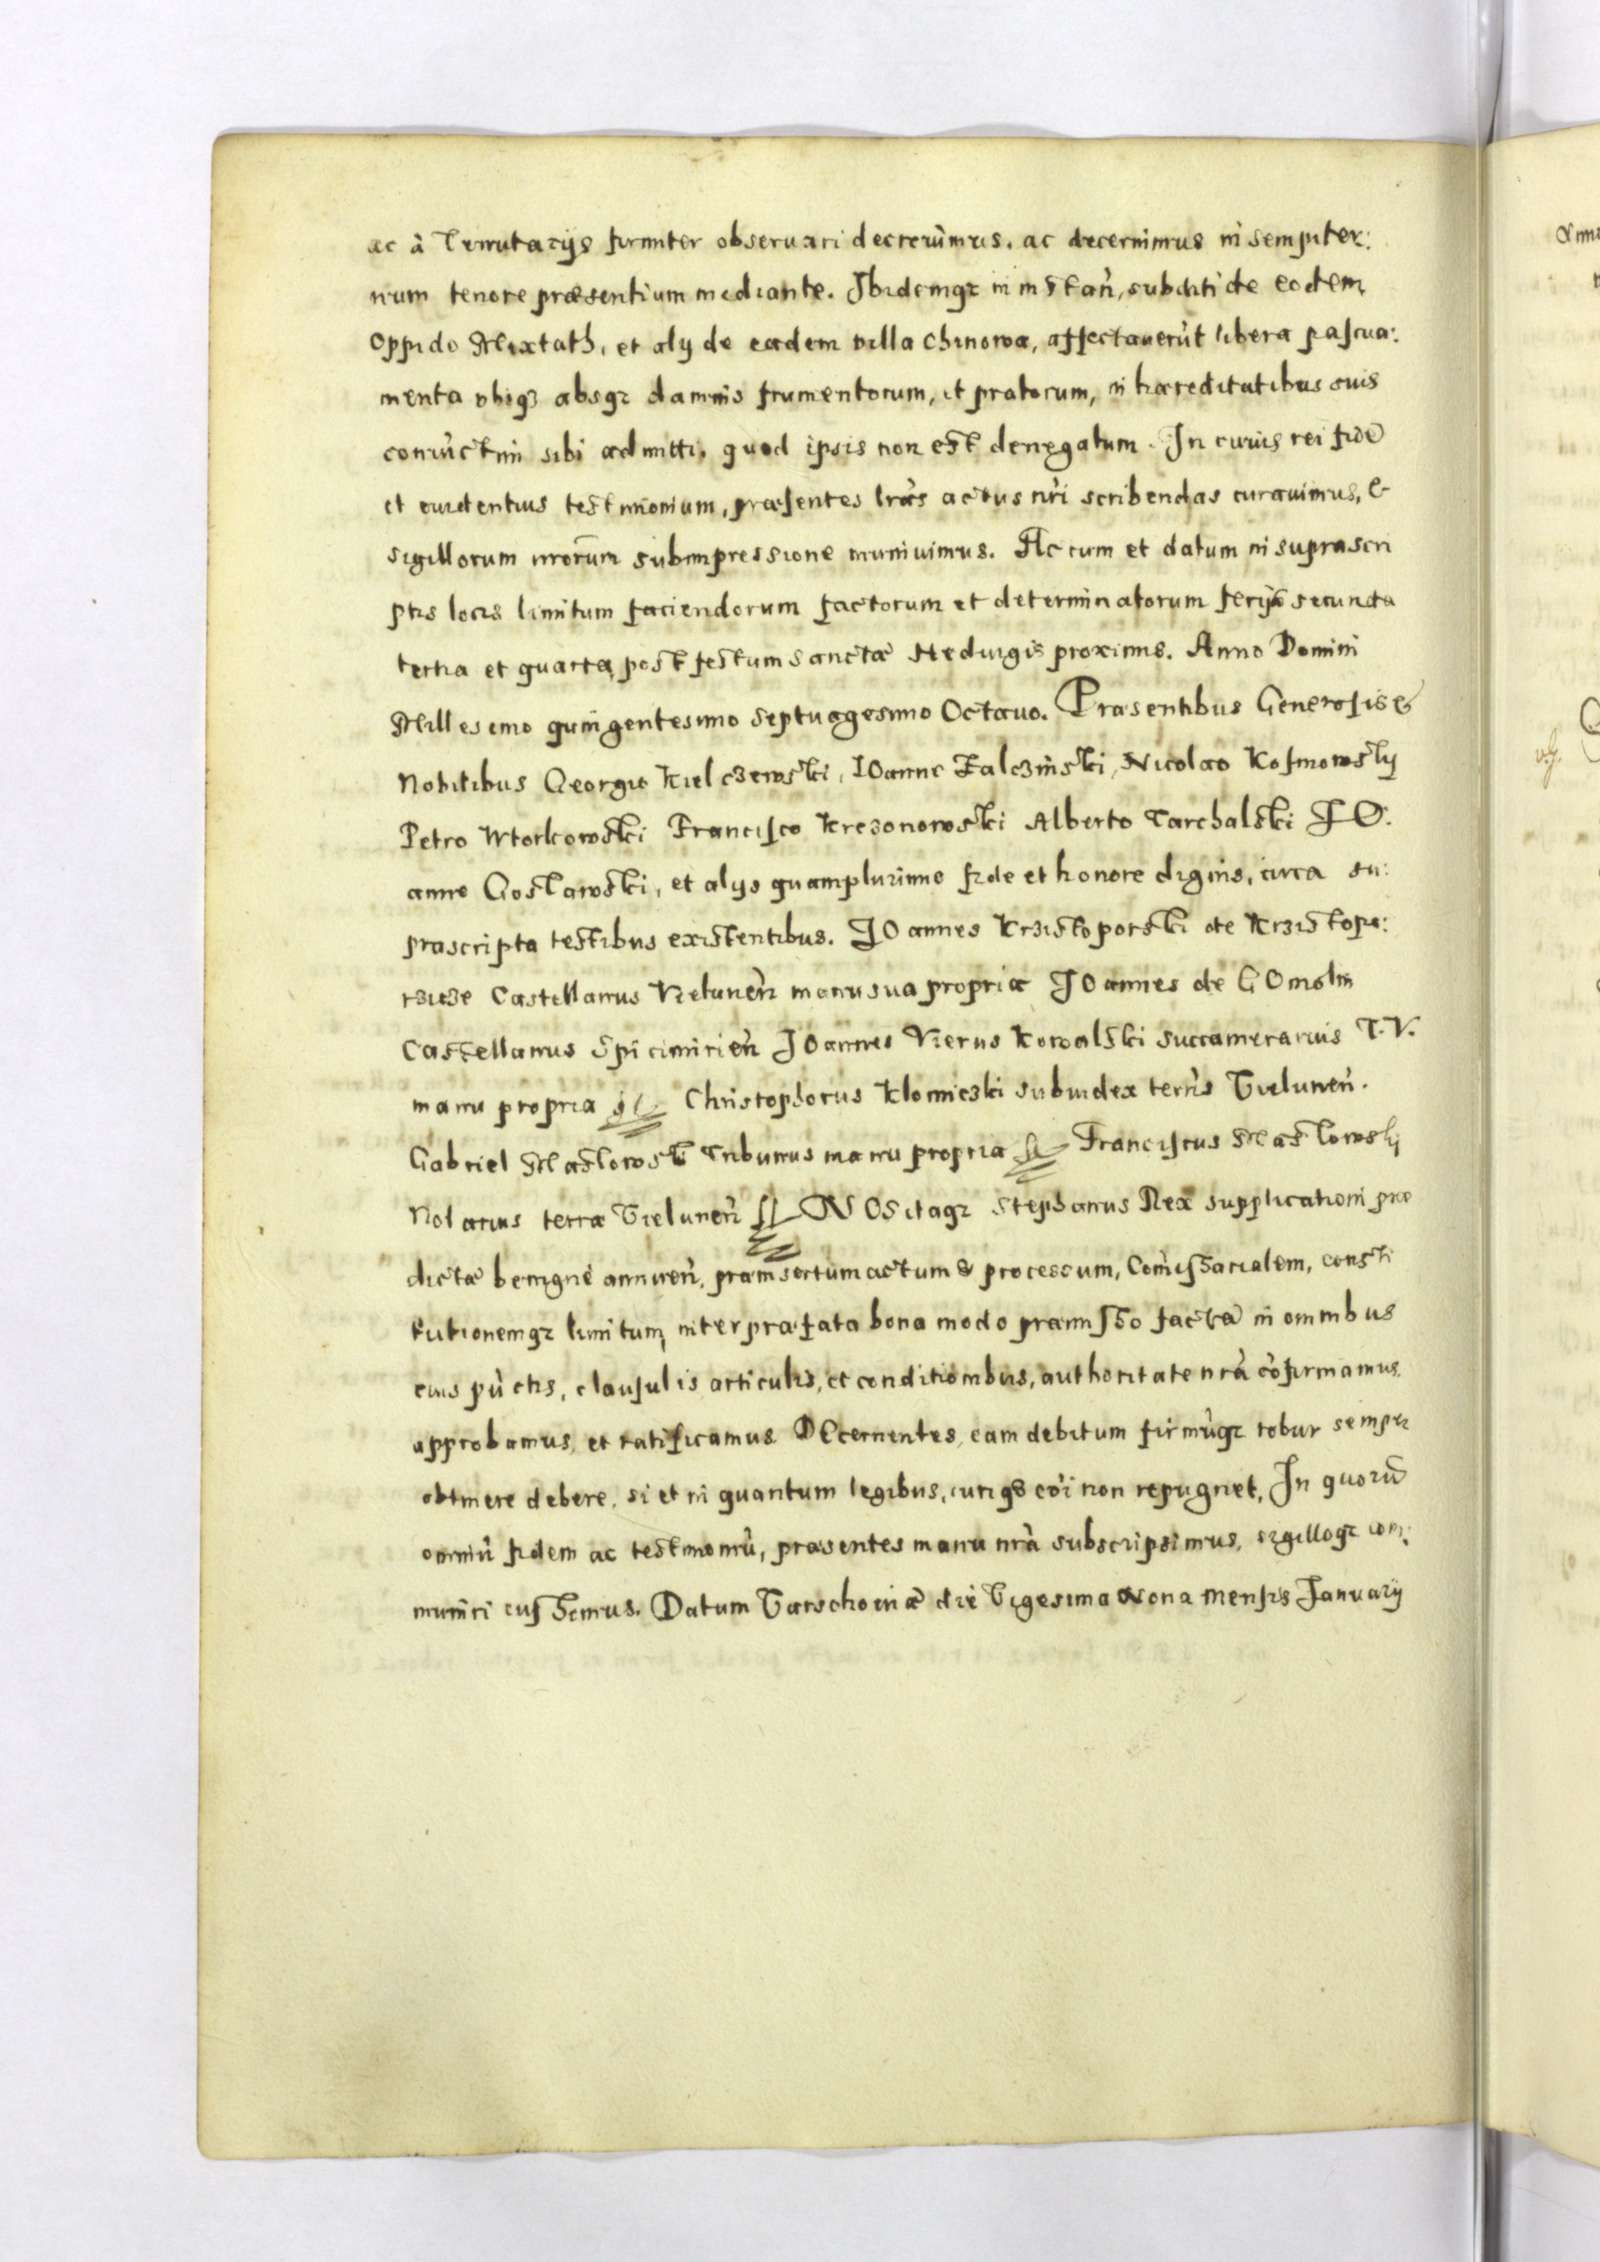 ac à Tenutarijs firmiter obseruari decreuimus. ac decernimus in sempiter:
num tenore præsentium mediante. Ibidemqz in instañ, subditi de eodem
Oppido Mixtath, et alij de eadem villa Chinowa, affectauerũt libera pascua:
menta vbiqz absqz damnis frumentorum, et pratorum, in hæreditatibus suis
coniũctim sibi admitti, quod ipsis non est denegatum. In cuius rei fidẽ
et euidentius testimonium, præsentes lràs actus nri scribendas curauimus, &
sigillorum nrorum subimpressione muniuimus. Actum et datum in suprascri
ptis locis limitum faciendorum factorum et determinatorum ferijs secunda
tertia et quarta post festum sanctæ Heduigis proximis. Anno Domini
Millesimo quingentesimo septuagesimo Octauo. Præsentibus Generosis &
Nobilibus Georgio Kielczewski, IOanne Zalczinski, Nicolao Kosmowskij
Petro Wtorkowski Francisco Krezonowski Alberto Tarchalski IO:
anne Goslawski, et alijs quamplurimis fide et honore dignis, circa su:
prascripta testibus existentibus. IOannes Krzistoporski de Krzistopo:
rzicze Castellanus Vieluneñ manu sua propria IOannes de GOmolin
Castellanus Spicimirieñ IOannes Vierus Kowalski succamerarius T.V.
manu propria Christophorus Klomicski subiudex terris Vieluneñ.
Gabriel Maslowski Tribunus manu propria Franciscus Maslowskij
Notarius terræ Vieluneñ NOS itaqz Stephanus Rex supplicationi præ
dictæ benignè annueñ, præinsertum actum & processum, Comissarialem, consti
tutionemqz limitum, inter præfata bona modo præmisso factã in omnibus
eius pũctis, clausulis articulis, et conditionibus, authoritate nrà cõfirmamus
approbamus, et ratificamus DEcernentes, eam debitum firmũqz robur semper
obtinere debere, si et in quantum legibus, iuriqz coi non repugnet, In quorũ
omniũ fidem ac testimoniũ, præsentes manu nrà subscripsimus, sigilloqz com:
muniri iussimus. Datum Varschouiæ die Vigesima Nona Mensis Ianuarij